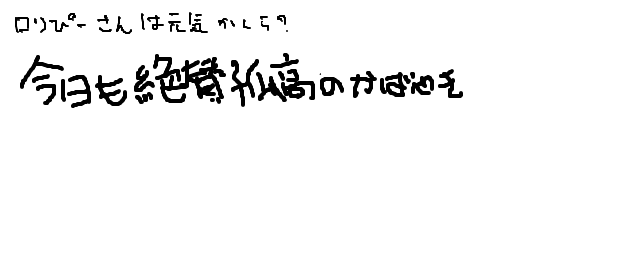 ロリぴーさんは元気かしら?
今日も絶賛孤高のかば焼き